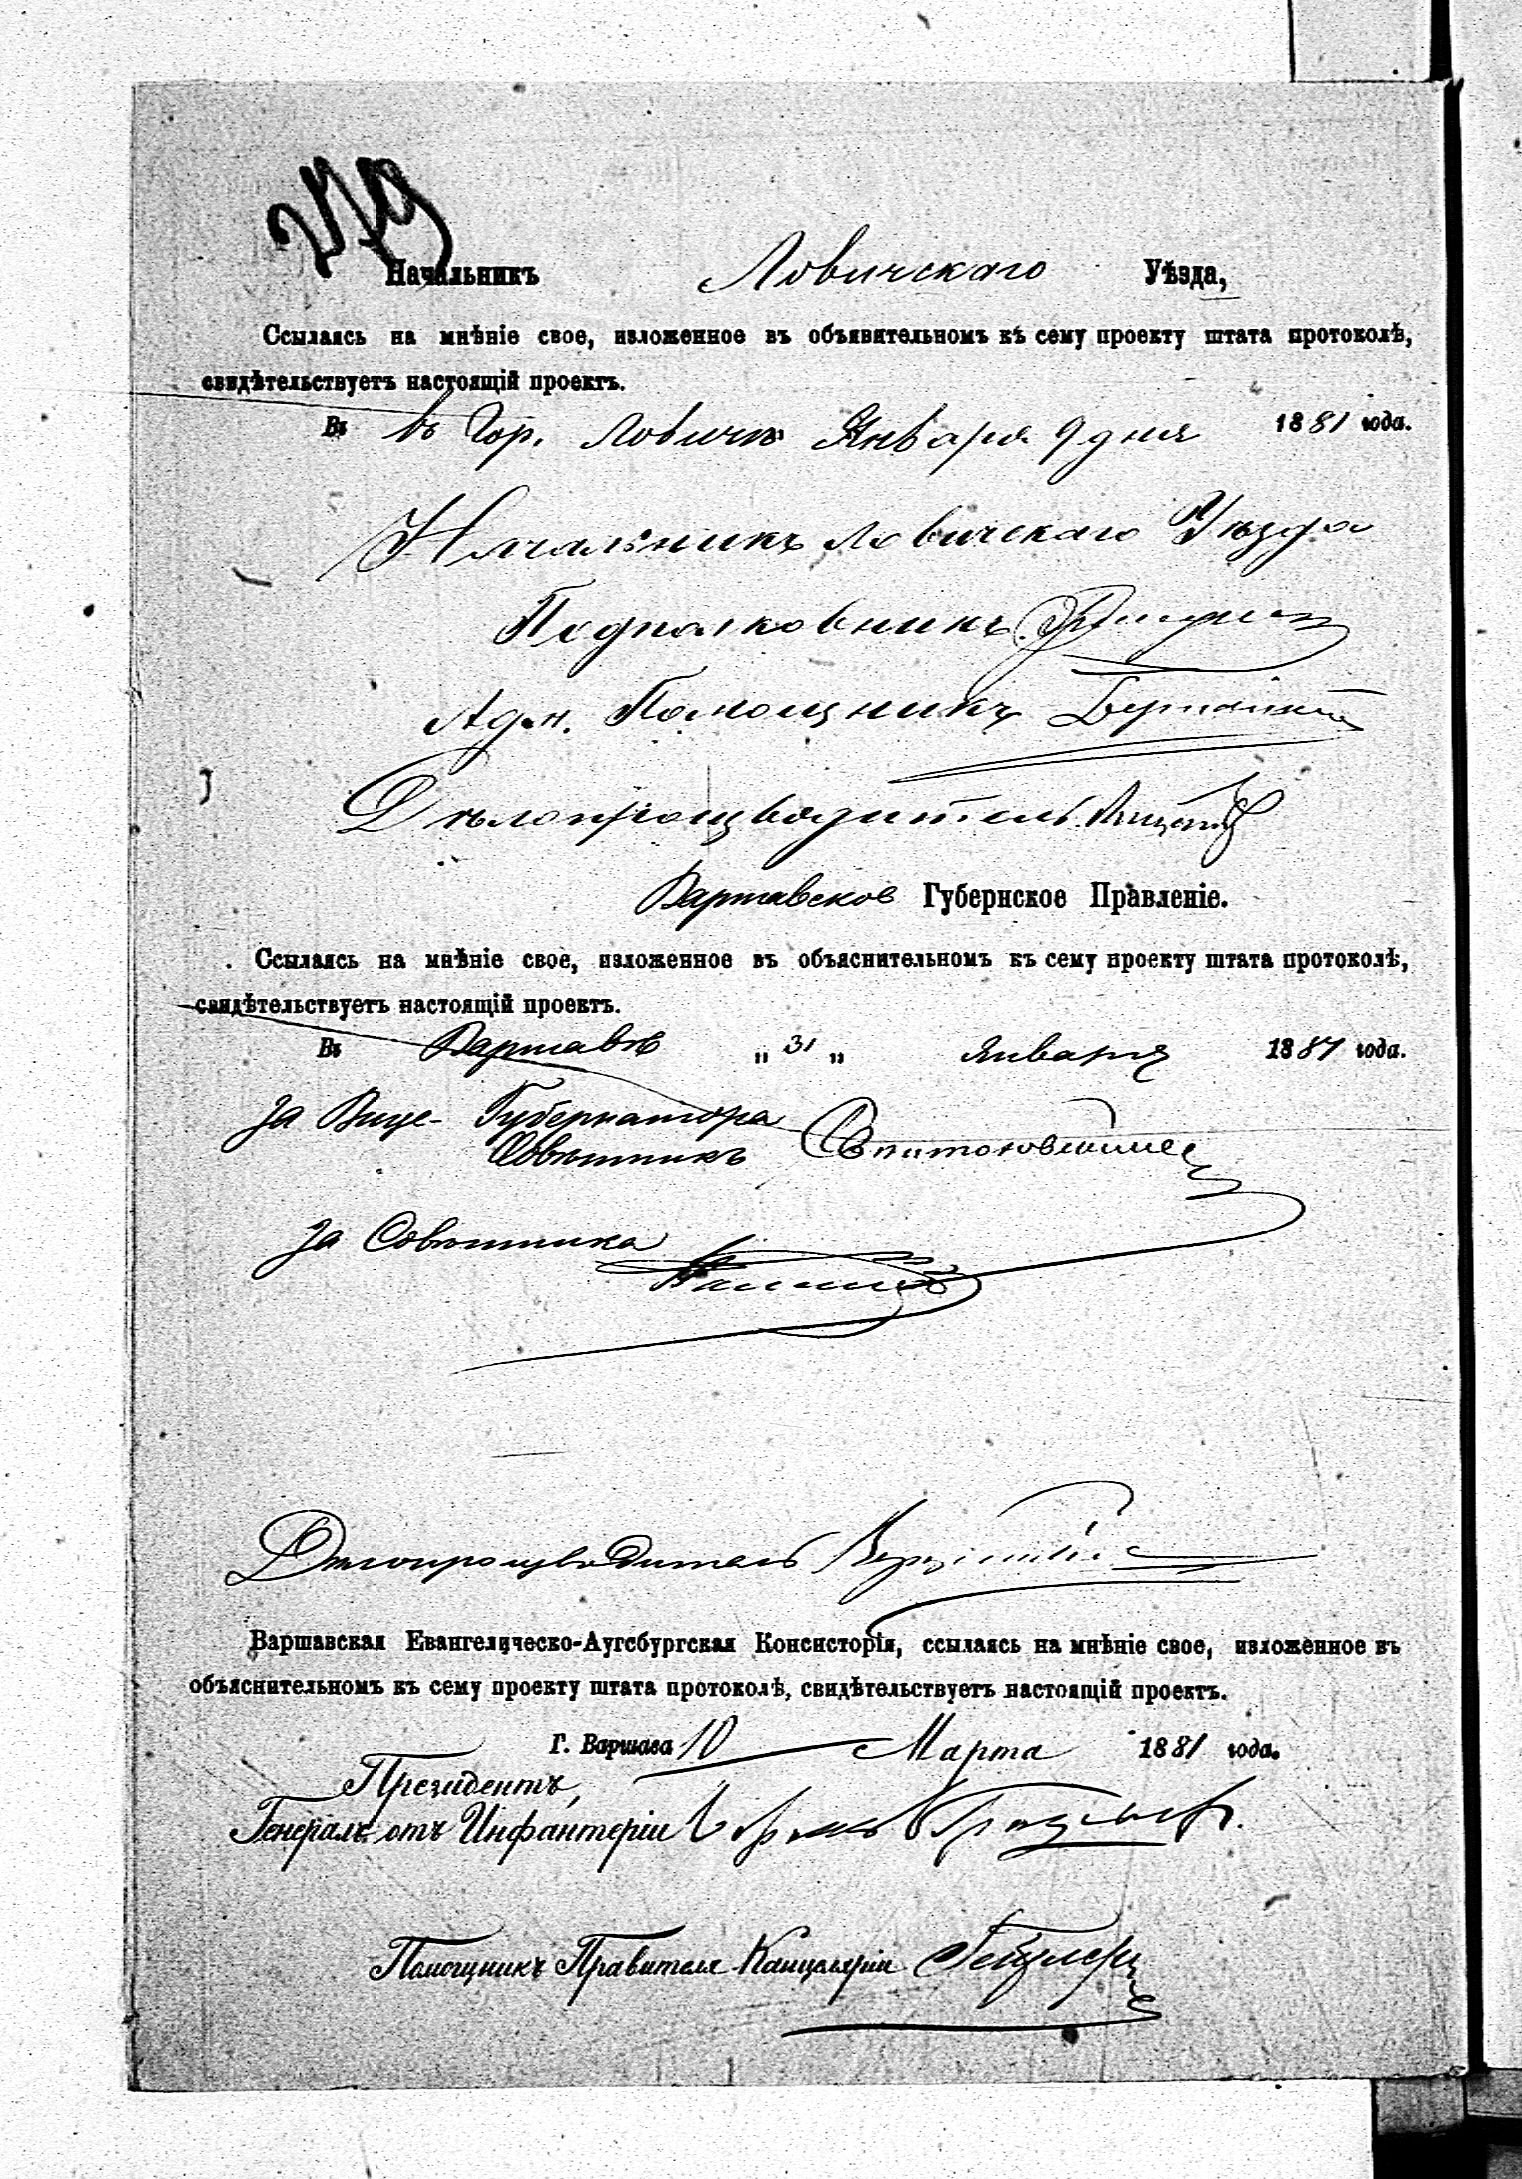 279
Начальникъ Ловичскаго Уѣзда,
Ссылаясь на мнѣніе свое, изложенное въ объявительномъ къ сему проекту штата протоколѣ,
свидѣтельствуетъ настоящій проектъ.
Въ въ Гор. Ловичъ Января 9 дня 1881 года.
Начальникъ Ловичскаго Уѣзда
Подполковникъ
Адм. Помощникъ
Дѣлопроизводитель
Варшавское Губернское Правленіе.
Ссылаясь на мнѣніе свое, изложенное въ объяснительномъ къ сему проекту штата протоколѣ,
свидѣтельствуетъ настоящій проектъ.
Въ Варшавѣ „ 31 „ Января 1881 года.
За Вице-Губернатора
Совѣтникъ
За Совѣтника
Дѣлопроизводитель
Варшавская Евангелическо-Аугсбургская Консисторія, ссылаясь на мнѣніе свое, изложенное въ
объяснительномъ къ сему проекту штата протоколѣ, свидѣтельствуетъ настоящій проектъ.
Г. Варшава 10 Марта 1881 года.
Президентъ,
Генералъ отъ Инфантеріи
Помощникъ Правителя Канцеляріи